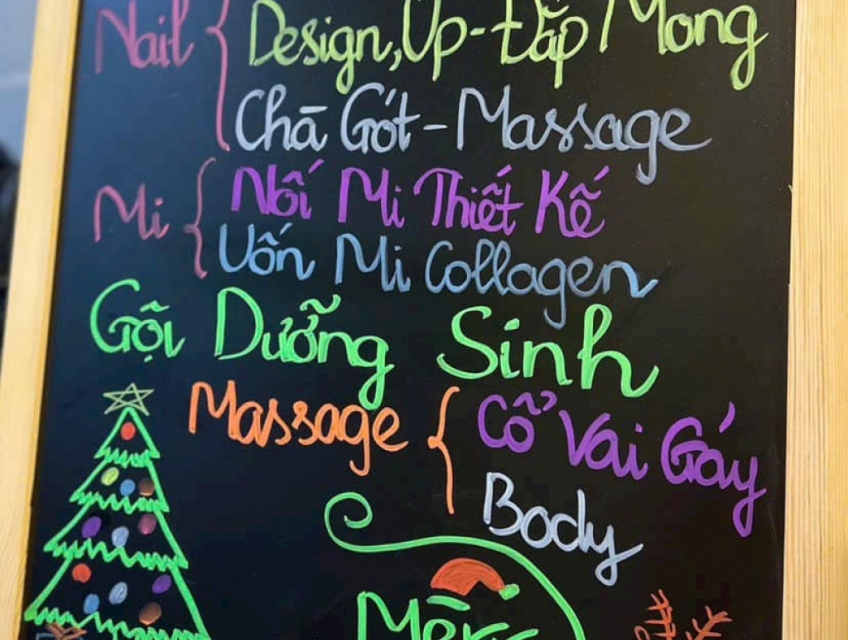 Nail { Design, Úp-Đắp Móng
Chà Gót - Massage
Mi { Nối Mi Thiết Kế
Uốn Mi Collagen
Gội Dưỡng Sinh
Massage { Cổ Vai Gáy
Body